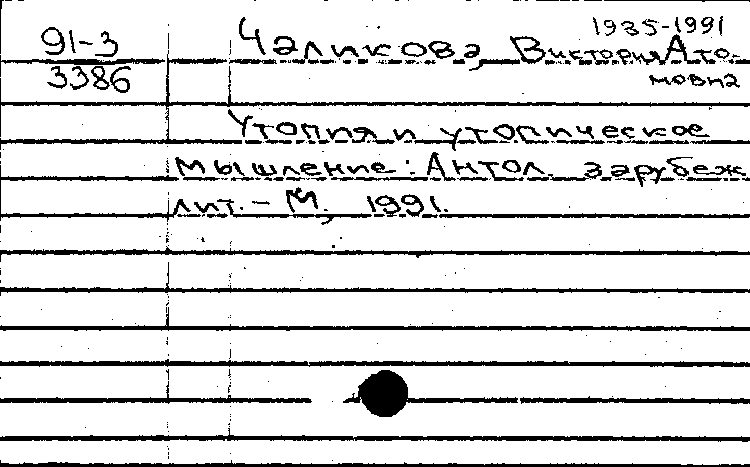 1935-1991
91-3 Чаликова, Виктория Ато-
3386 мовна
Утопия и утопическое
мышление: Антол. зарубеж
лит. - М, 1991.